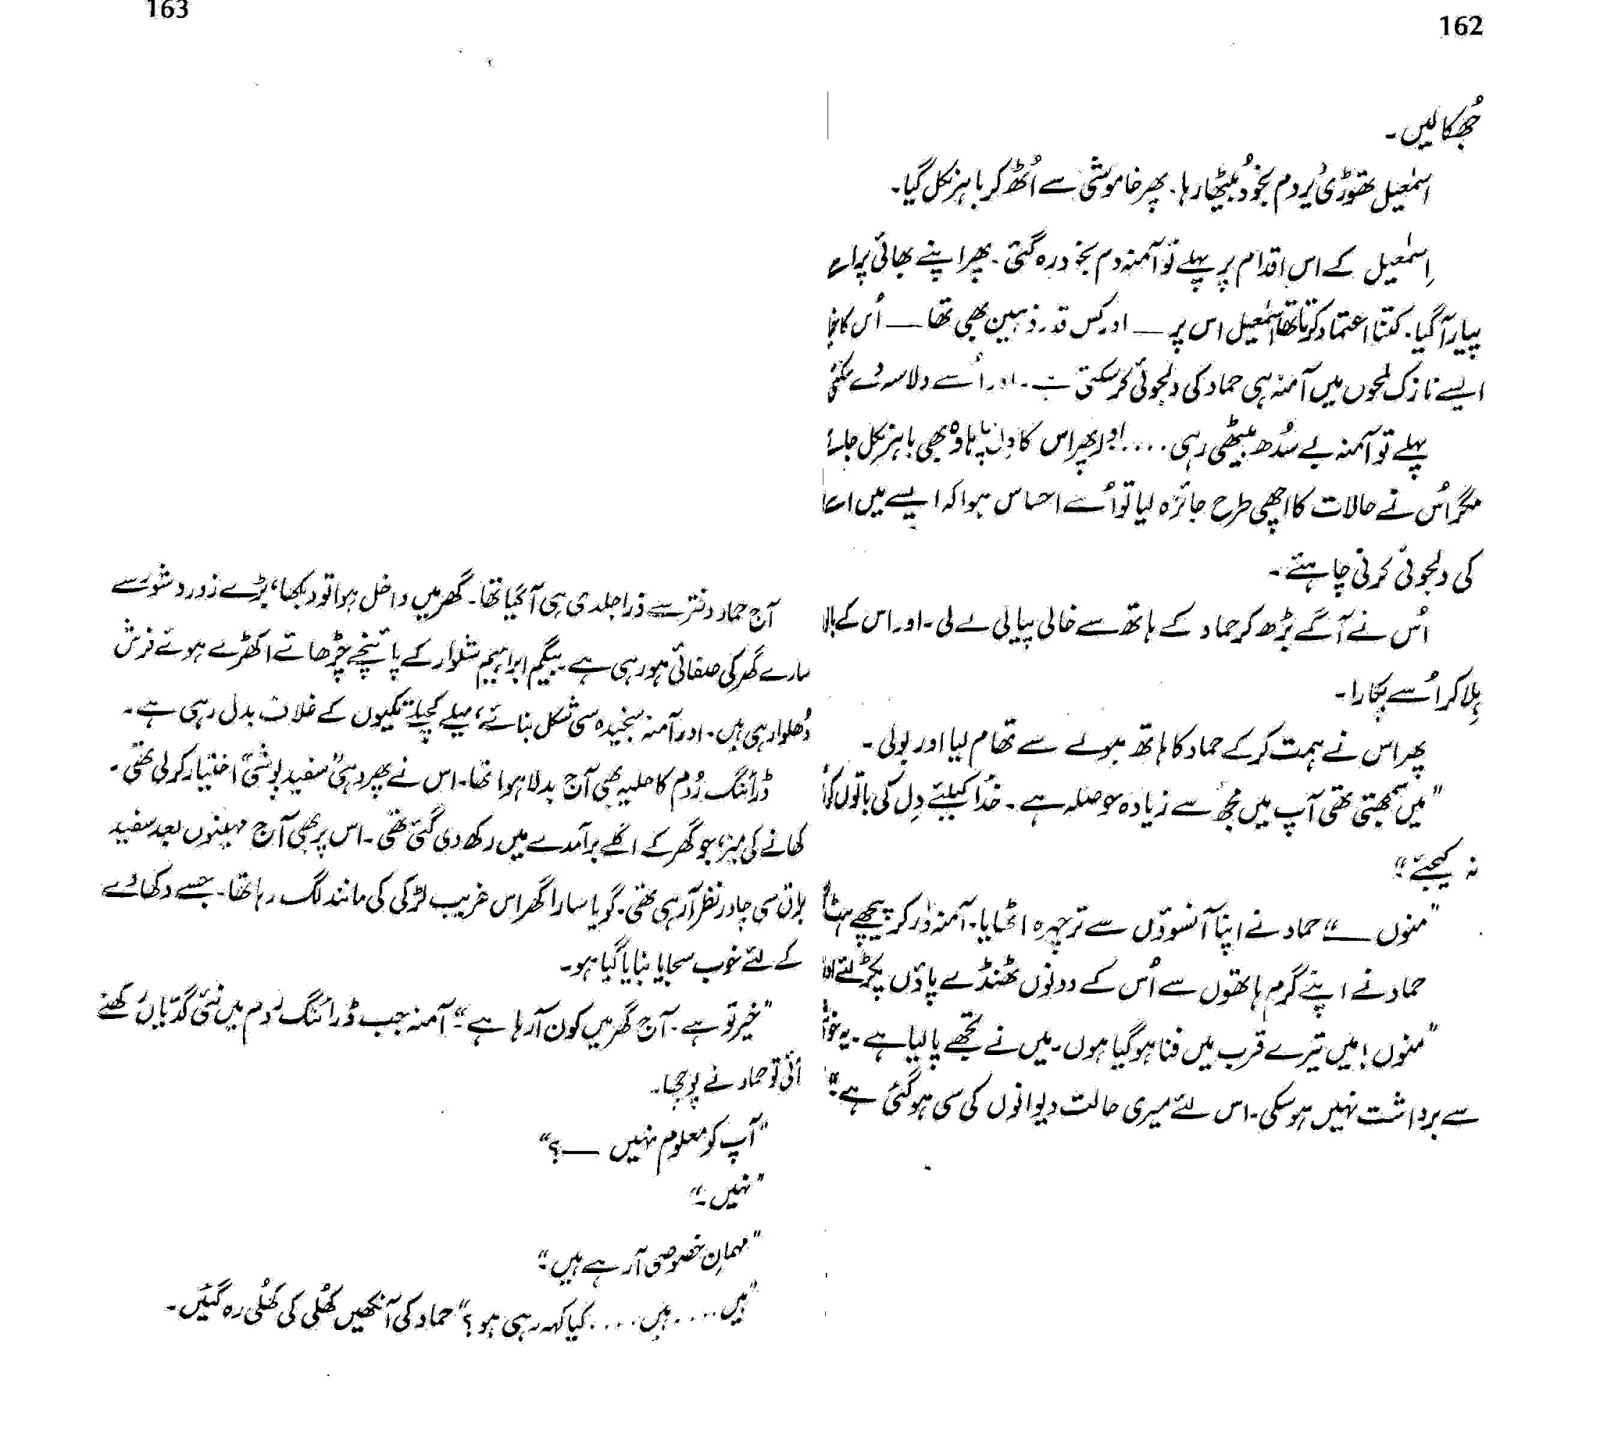 162
جُھکالیں۔
اسمٰعیل تھوڑی دیر دم بخود بیٹھا رہا۔ پھر خاموشی سے اُٹھ کر باہر نکل گیا۔
اِسمٰعیل کے اس اقدام پر پہلے تو آمنہ دم بخود رہ گئی۔ پھر اپنے بھائی پر
پیار آگیا۔ کتنا اعتماد کرتا تھا اسمٰعیل اس پر — اور کس قدر ذہین بھی تھا — اُس کا
ایسے نازک لمحوں میں آمنہ ہی حماد کی دلجوئی کرسکتی ہے۔ اور اُسے دلاسہ دے
پہلے تو آمنہ بے سُدھ بیٹھی رہی .... اور پھر اس کا دل چاہا وہ بھی باہر نکل جائے
مگر اُس نے حالات کا اچھی طرح جائزہ لیا تو اُسے احساس ہوا کہ ایسے میں
کی دلجوئی کرنی چاہئے۔
اُس نے آگے بڑھ کر حماد کے ہاتھ سے خالی پیالی لے لی۔ اور اس کے
ہِلا کر اُسے پکارا۔
پھر اس نے ہمت کرکے حماد کا ہاتھ ہولے سے تھام لیا اور بولی۔
"میں سمجھتی تھی آپ میں مجھ سے زیادہ حوصلہ ہے۔ خدا کیلئے دِل کی باتوں
نہ کیجئے"
"منوں —" حماد نے اپنا آنسوؤں سے تر چہرہ اٹھایا۔ آمنہ ڈر کر پیچھے
حماد نے اپنے گرم ہاتھوں سے اُس کے دونوں ٹھنڈے پاؤں پکڑ لئے
"منوں! میں تیرے قرب میں فنا ہوگیا ہوں۔ میں نے تجھے پالیا ہے۔ یہ
سے برداشت نہیں ہوسکی۔ اس لئے میری حالت دیوانوں کی سی ہوگئی ہے"
163
آج حماد دفتر سے ذرا جلدی ہی آگیا تھا۔ گھر میں داخل ہوا تو دیکھا، بڑے زور و شور سے
سارے گھر کی صفائی ہورہی ہے۔ بیگم ابراہیم شلوار کے پائنچے چڑھائے اکھڑے ہوئے فرش
دُھلوا رہی ہیں۔ اور آمنہ سنجیدہ سی شکل بنائے، میلے کچیلے تکیوں کے غلاف بدل رہی ہے۔
ڈرائنگ رُوم کا حلیہ بھی آج بدلا ہوا تھا۔ اس نے پھر وہی "سفید پوشی" اختیار کرلی تھی۔
کھانے کی میز، جو گھر کے اگلے برآمدے میں رکھ دی گئی تھی۔ اس پر بھی آج مہینوں بعد سفید
براق سی چادر نظر آرہی تھی۔ گویا سارا گھر اس غریب لڑکی کی مانند لگ رہا تھا۔ جسے دکھاوے
کے لئے خوب سجایا بنایا گیا ہو۔
"خیر تو ہے۔ آج گھر میں کون آرہا ہے"۔ آمنہ جب ڈرائنگ رُوم میں نئی گدّیاں رکھنے
آئی تو حماد نے پوچھا۔
"آپ کو معلوم نہیں —؟"
"نہیں۔"
"مہمانِ خصوصی آرہے ہیں"۔
"ہیں .... ہیں .... کیا کہہ رہی ہو؟" حماد کی آنکھیں کُھلی کی کُھلی رہ گئیں۔